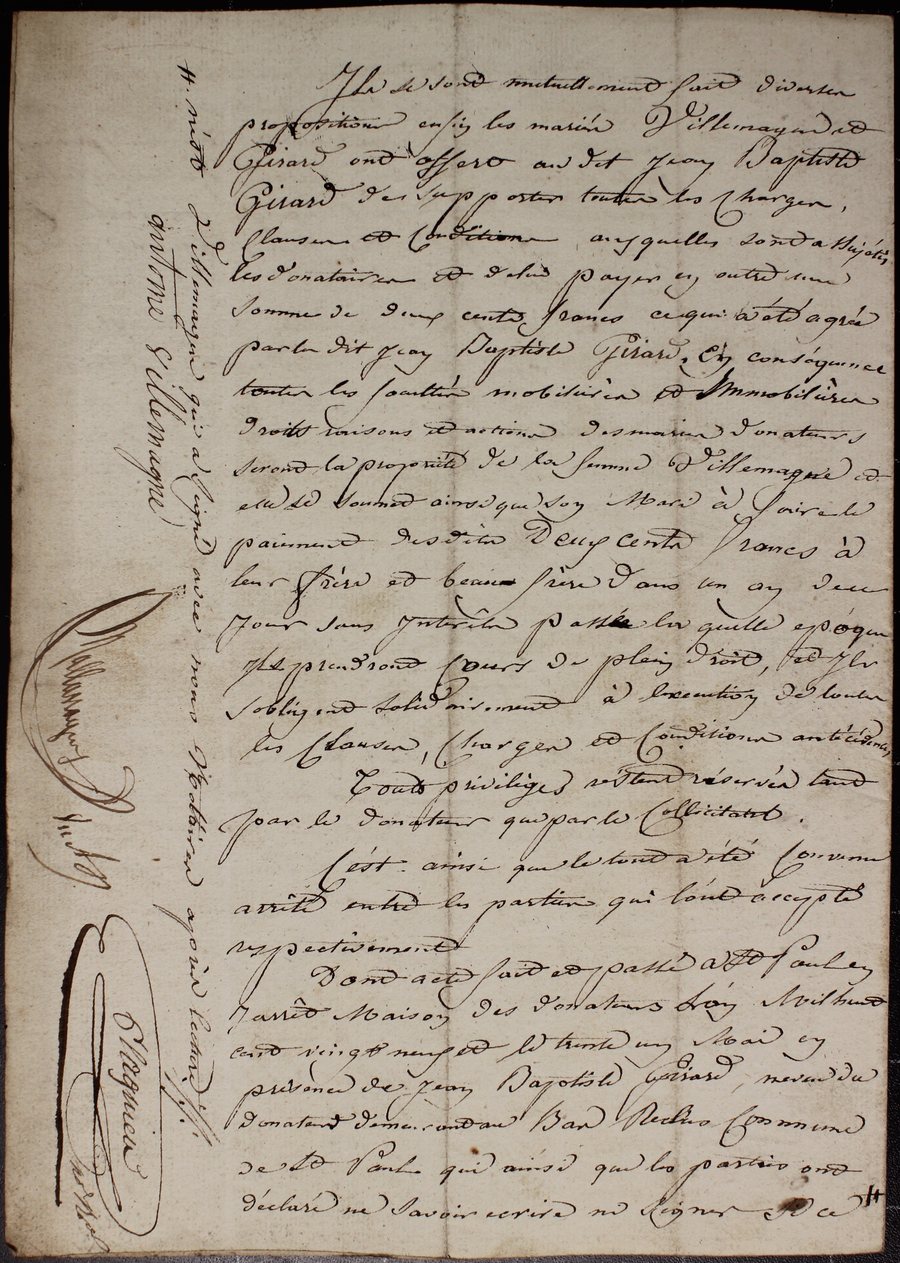 Ils se sont mutuellement fait diverses
propositions enfin les mariés Villemagne et
Girard ont offert au dit Jean Baptiste
Girard de supporter toutes les charges,
clauses et conditions auxquelles sont assujétis
les donataires et de lui payer en outre une
somme de deux cents francs ce qui a été agréé
par le dit Jean Baptiste Girard. En conséquence
toutes les facultés mobilières et Immobilières
droits raisons et actions des mariés donateurs
seront la propriété de la femme Villemagne et
elle se soumet ainsi que son Mari à faire le
paiement desdits Deux cents francs à
leur frère et beau frère dans un an de ce
jour sans Intérêts passé la quelle epoque
Ils prendront Cours de plein droit, et Ils
sobligent solidairement à lexecution de toutes
les Clauses, Charges et Conditions antécédentes
Touts priviléges réstent résérvés tant
par le donateur que par le Collicitant.
C'ést ainsi que le tout a été Convenu
arrêté entre les parties qui l'ont accepté
respectivement
Dont acte fait et passé a St Paul en
Jarrêt Maison des donateurs L'an Mil huit
cent vingt neuf et le trente un Mai en
présence de Jean Baptiste Girard neveu du
donateur demeurant au Bas Reclus Commune
de St Paul qui ainsi que les parties ont
déclaré ne savoir ecrire ne signer de ce #
#. n'est Villemagne qui a signé avec nous Notaires après lecture
antoine Villemagne